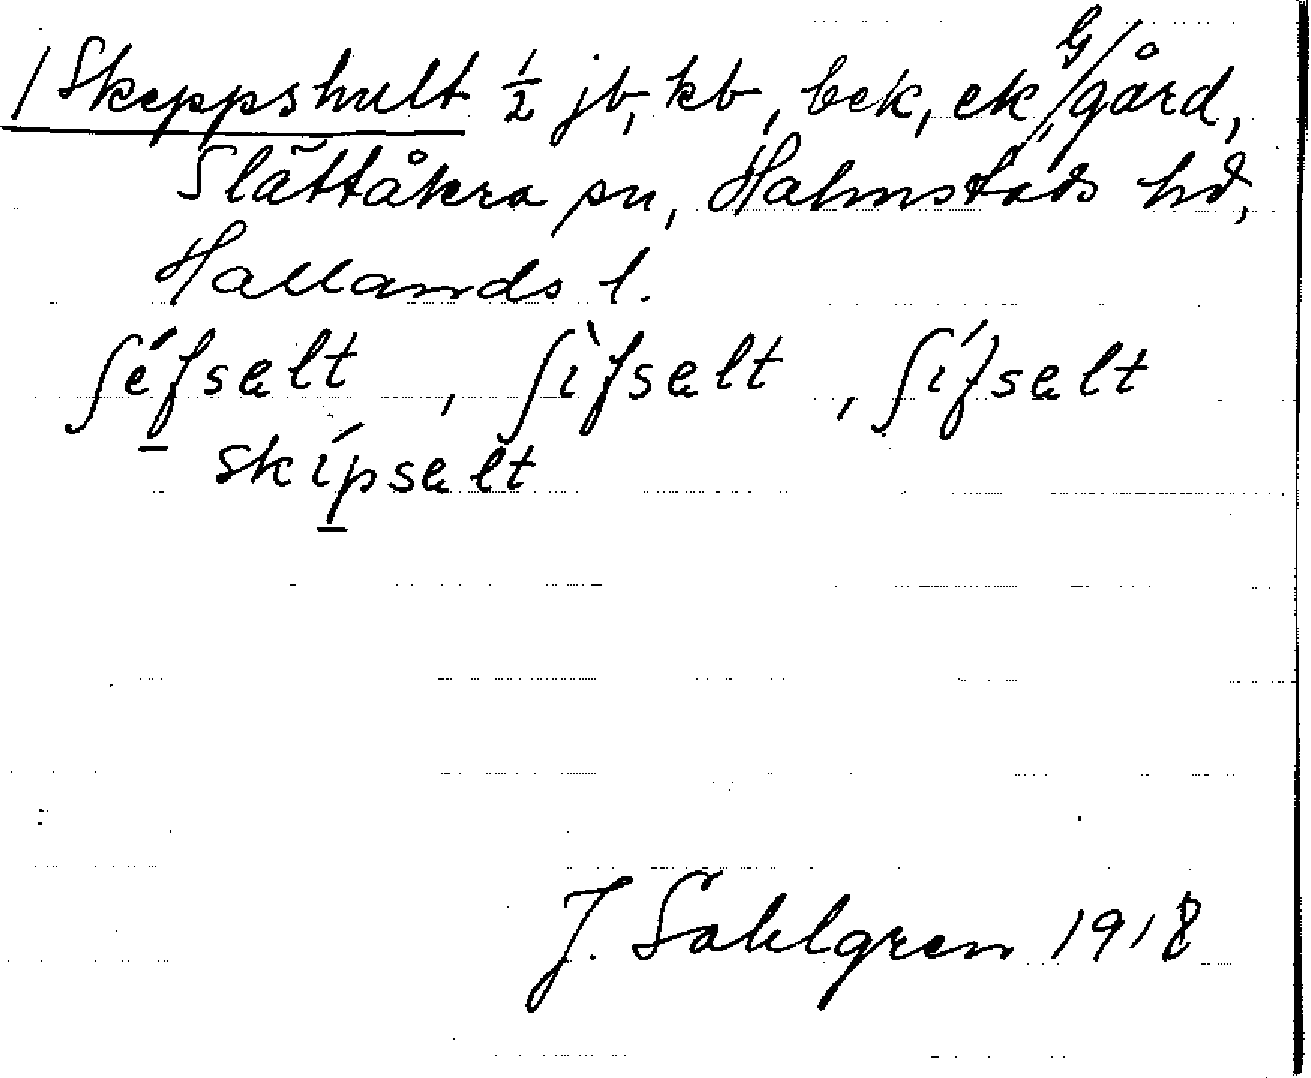 1 Skeppshult ½ jb, kb, bek, ek, G/gård,
Slättåkra sn, Halmstads hd,
Hallands l.
ſéfsælt, ſìfsælt, ſífsælt
skípsælt
J. Sahlgren 1918